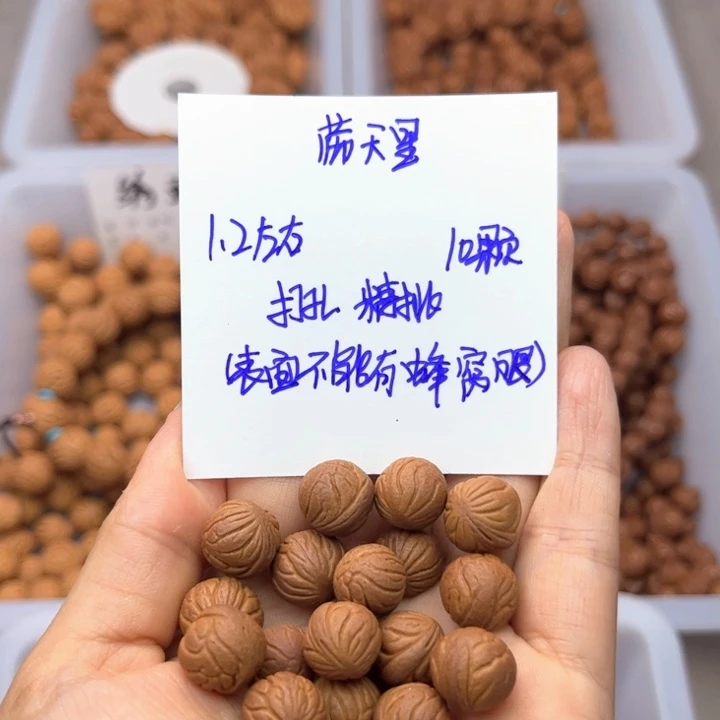 满天星
1.2左右
10颗
打孔 精挑
(表面不能有蜂窝眼)
绣